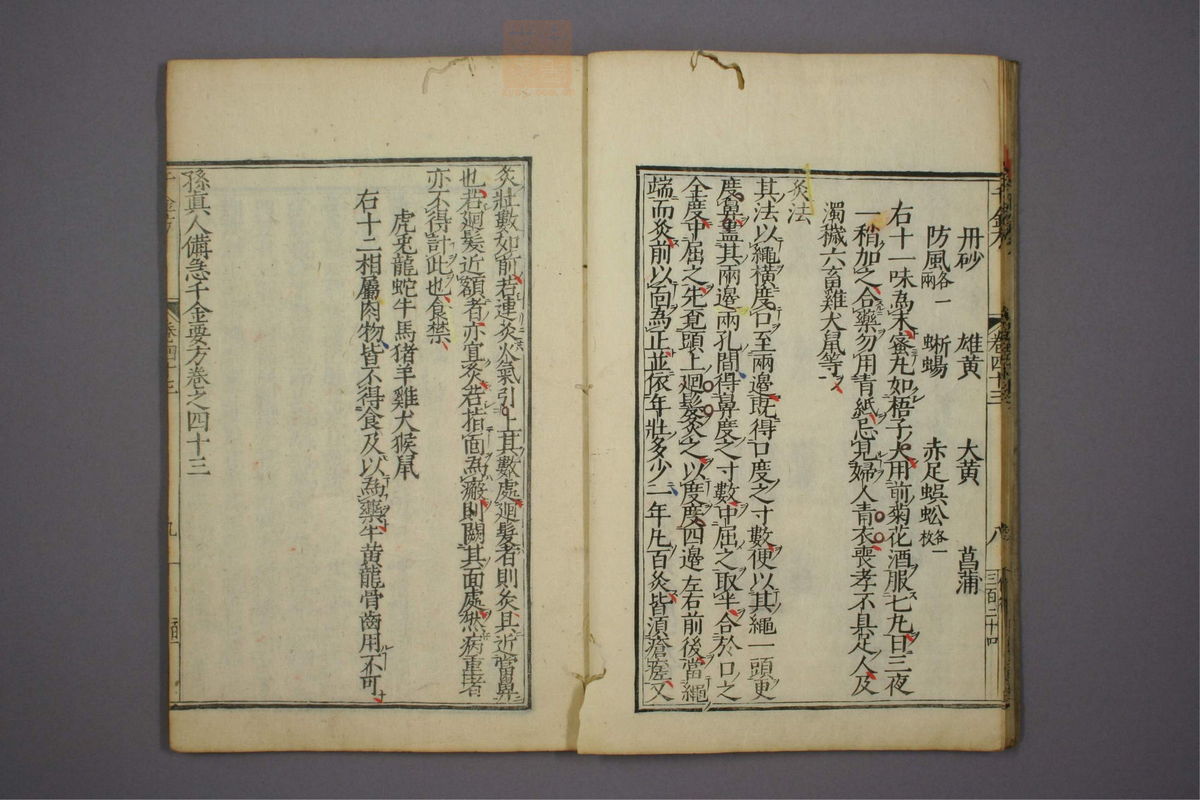 千金方 卷四十三 八 三百二十四
丹砂 雄黃 大黃 菖蒲
防風各一兩 蜥蜴 赤足蜈蚣各一枚
右十一味為末蜜丸如梧子大用前菊花酒服七丸日三夜
一稍加之合藥勿用青紙忌見婦人青衣喪孝不具足人及
濁穢六畜雞犬鼠等
灸法
其法以繩橫度口至兩邊既得口度之寸數便以其繩一頭更
度鼻盡其兩邊兩孔間得鼻度之寸數中屈之取半合於口之
全度中屈之先覓頭上迴髮灸之以度度四邊左右前後當繩
端而灸前以面為正並依年壯多少一年凡百灸皆須瘡瘥又
灸壯數如前若連灸火氣引上其數處迴髮者則灸其近當鼻
也若迴髮近額者亦宜灸若指面為瘢則闕其面處然病重者
亦不得計此也食禁
虎兔龍蛇牛馬猪羊雞犬猴鼠
右十二相屬肉物皆不得食及以為藥牛黃龍骨齒用不可
孫真人備急千金要方卷之四十三
九